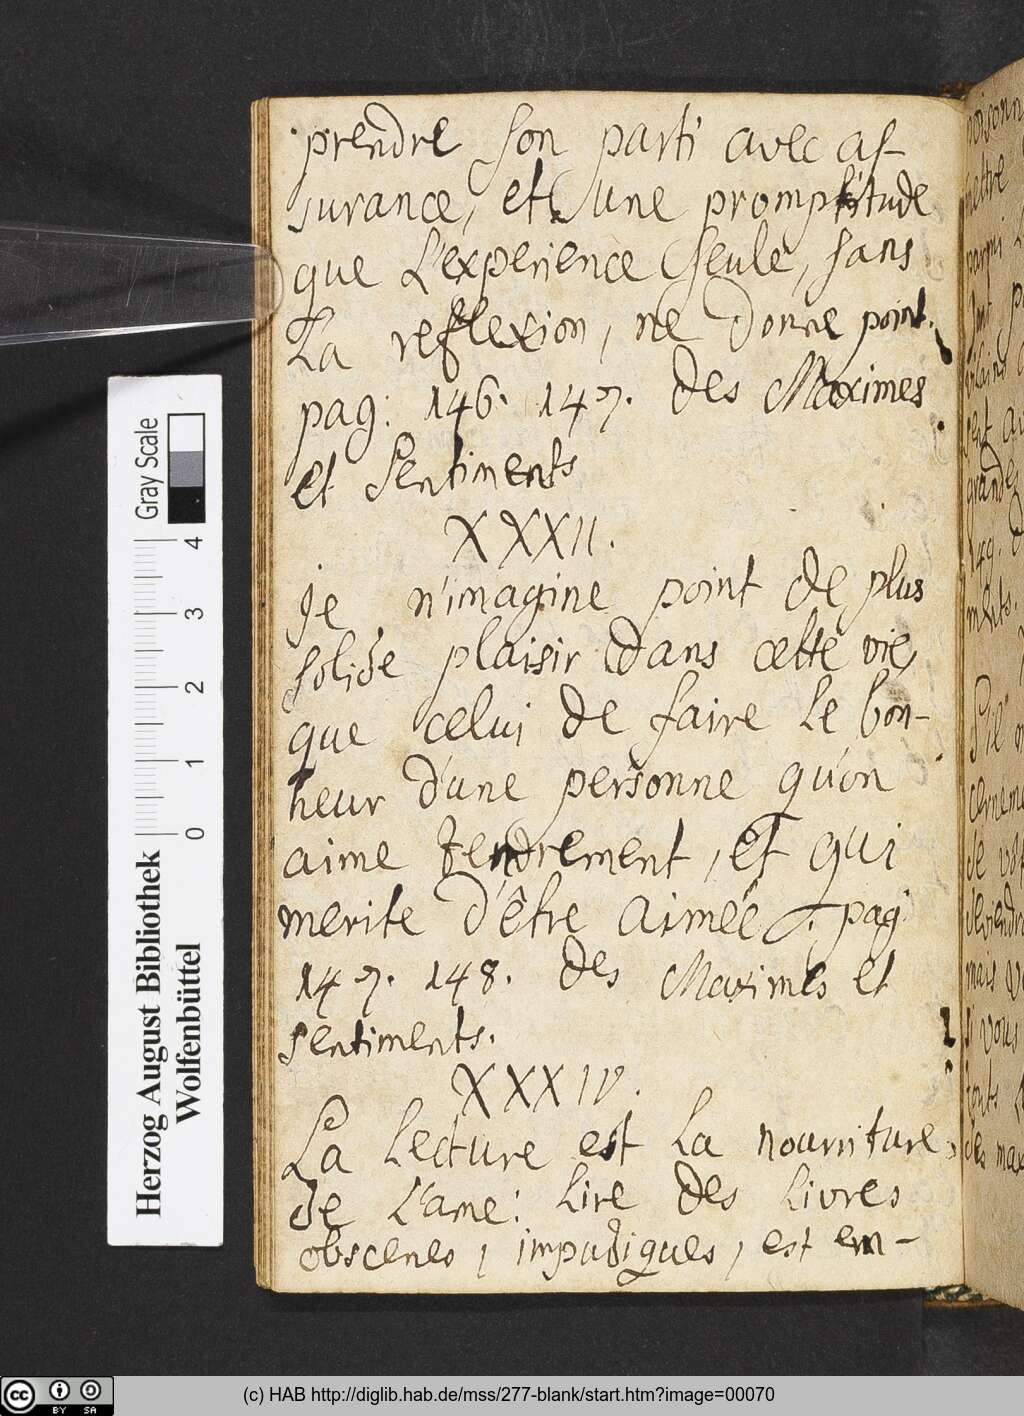 prendre son parti avec as-
surance, et une promptitude
que L'experience seule, sans
La reflexion, ne donne point.
pag: 146. 147. des Maximes
et sentiments
XXXII.
Je n'imagine point de plus
solide plaisir dans cette vie,
que celui de faire le bon-
heur d'une personne qu'on
aime tendrement, et qui
merite d'être aimée. pag
147. 148. des Maximes et
sentiments.
XXXIV.
La lecture est la nourriture
de L'ame: lire des livres
obscenes, impudiques, est em-
Gray Scale
4
3
2
1
0
Herzog August Bibliothek
Wolfenbüttel
cc BY SA
(c) HAB http://diglib.hab.de/mss/277-blank/start.htm?image=00070